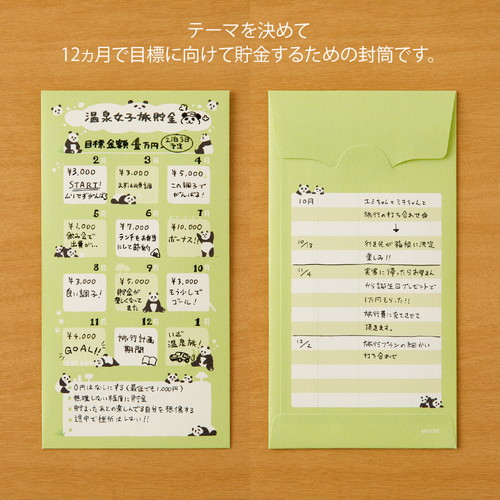 テーマを決めて
12ヵ月で目標に向けて貯金するための封筒です。
温泉女子旅貯金
目標金額4万円
2泊3日
予定
2月
¥3,000
START!
ムリせずがんばる
3月
¥3,000
4月
¥5,000
この調子で
がんばる!
5月
¥1,000
飲み会で
出費が…
6月
¥7,000
ランチをお弁当
にして節約
7月
¥10,000
ボーナス!!
8月
¥3,000
良い調子!
9月
¥5,000
貯金が
楽しくなってきた
10月
¥3,000
もう少しで
ゴール!
11月
¥4,000
GOAL!!
12月
旅行計画
期間
1月
いざ
温泉旅!
0円はなしにする(最低でも1,000円)
無理しない程度に貯金
貯まったあとの楽しんでる自分を想像する
途中で挫折はしない!!
10月
ユミちゃんとミキちゃんと
旅行の打ち合わせ
↓
10/13
行き先が箱根に決定
楽しみ!!
11/4
実家に帰ったらお母さん
から誕生日プレゼントで
1万円もらった!!
旅行費に充てさせて
頂きます。
12/2
旅行プランの細かい
打ち合わせ
MIDORI